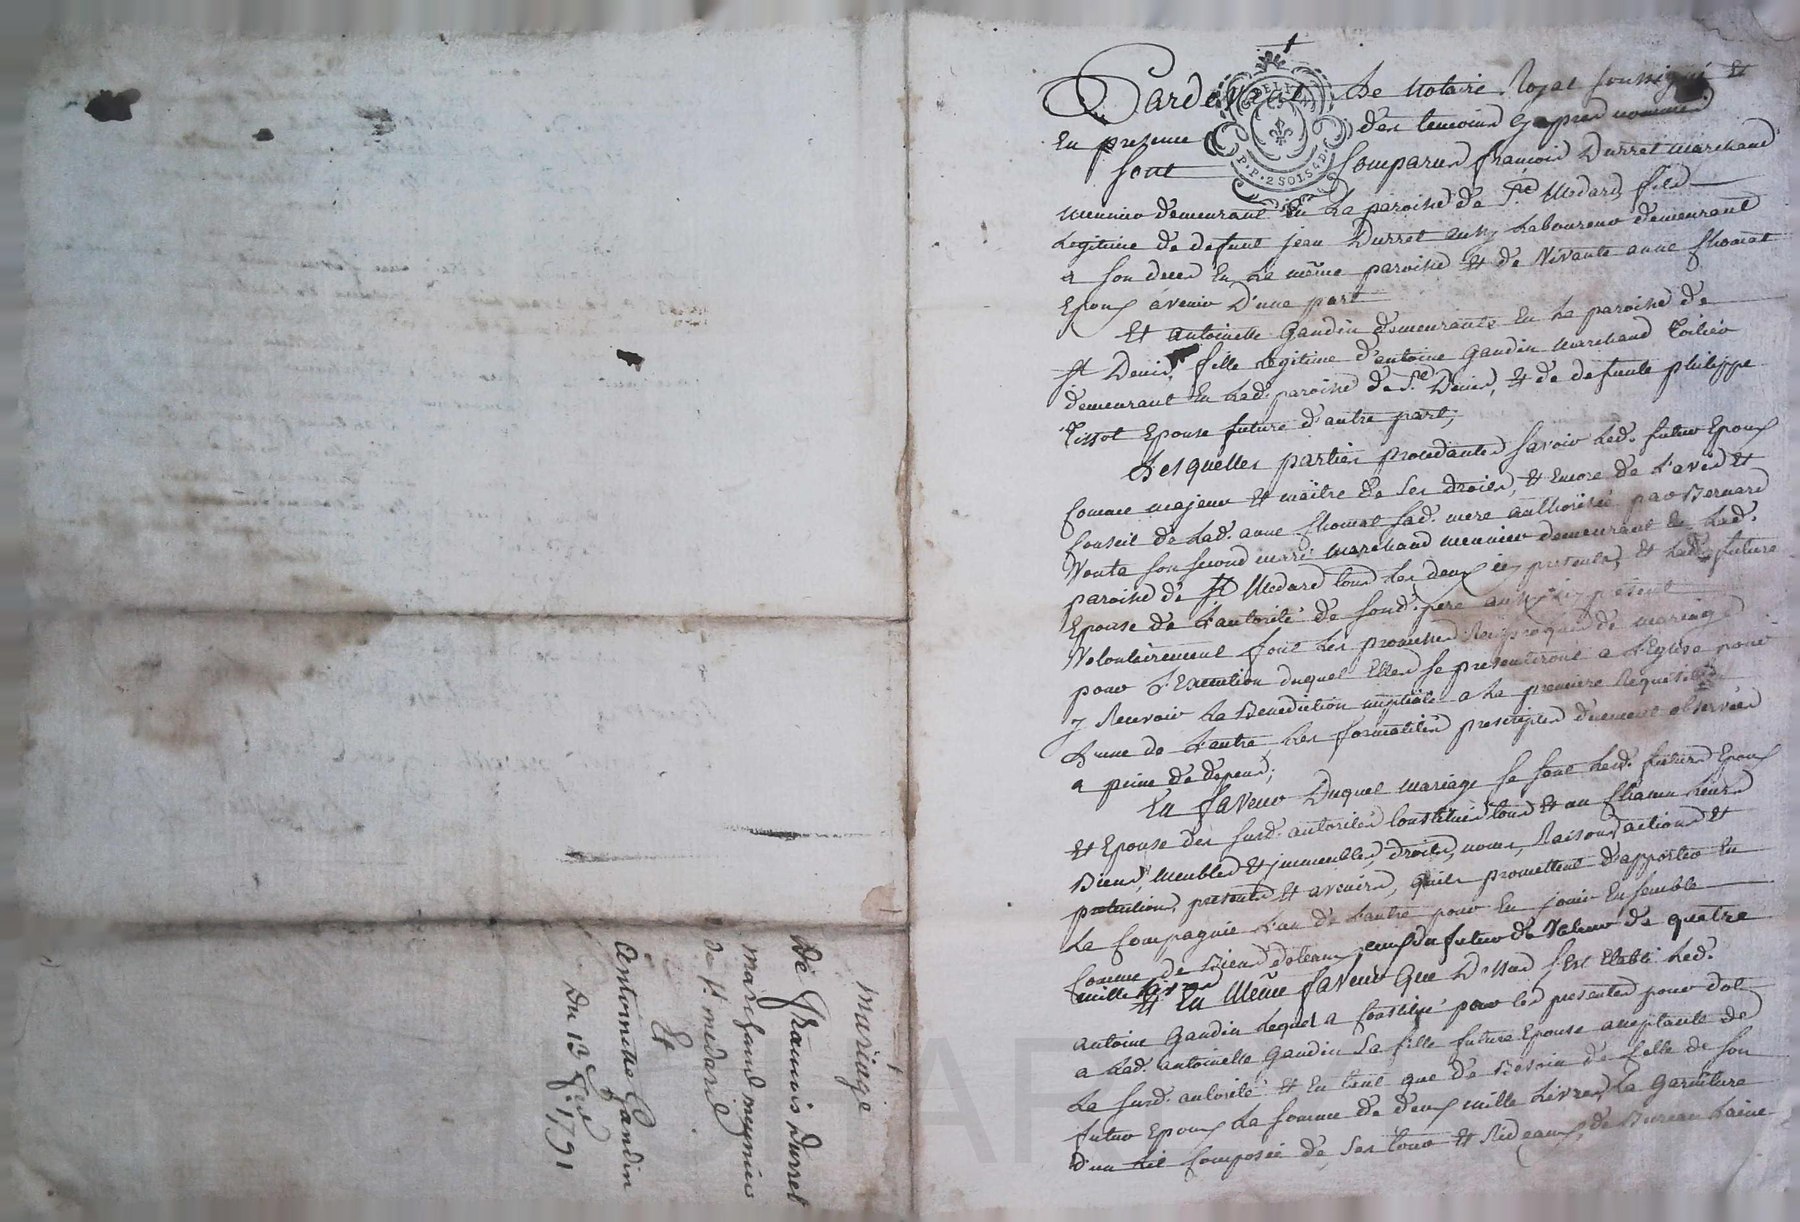 Pardevant Le Notaire Royal soussigné et
En presence des temoins cy apres nommés
Sont Comparus françois Durret marchand
meunier demeurant En La paroisse de St Medard, fils
Legitime de defunt jean Durret aussy Laboureur demeurant
a son deces En La même paroisse et de Vivante anne Chomat
Epoux àvenir D'une part
Et antoinette Gaudin demeurante En La paroisse de
St Denis, fille Legitime d'antoine Gaudin marchand Toilier
demeurant En Lad. paroisse de St Denis, et de defunte philippe
Tissot Epouse future d'autre part;
Lesquelles parties procedantes savoir Led. futur Epoux
Comme majeur et maître de ses droits, et Encore de L'avis et
Conseil de Lad. anne Chomat sad. mere authorisée par Bernard
son second mari marchand meunier demeurant En Lad.
paroisse de St Medard tous Les deux icy presents, et Lad. future
Epouse de L'autorité de sond. pere aussy icy présent
Volontairement font Les promesses Reciproques de mariage
pour L'Execution duquel Elles se presenteront a L'Eglise pour
y Recevoir La Benediction nuptiale a La premiere Requisition
L'une de L'autre Les formalités prescriptes duement observées
a peine de depens;
En faveur Duquel mariage se sont Lesd. futurs Epoux
et Epouse des susd. autorités Constitués tous et un Chacun Leurs
Biens, Meubles et immeubles, droits, noms, Raisons, actions et
pretentions, presents et avenirs, quils promettent d'apporter En
La Compagnie L'un de L'autre pour En jouir Ensemble
Comme de Biens dotaux, ceux du futur de Valeur de quatre
mille Livres
Et En Même faveur Que Dessus s'Est Etabli Led.
Antoine Gaudin Lequel a Constitué pour Les presentes pour Dot
a Lad. antoinette Gaudin Sa fille future Epouse acceptante de
La susd. autorité et En tant que de Besoin de Celle de son
futur Epoux La somme de deux mille Livres, La Garniture
d'un Lit Composée de ses tour et Rideaux, de Bureau Laine
mariage
De François Durret
marchand meynier
de St medard
Et
Antoinette Gaudin
Du 13 1791
G. DELYON
P.P. 2 SOLS 4 D.